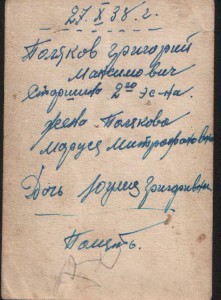 27. X 38 г.
Поляков Григорий
Максимович
Старшина 2го эс-на.
жена Полякова
Маруся Митрофановна
Дочь Юлия Григорьевна
Память.